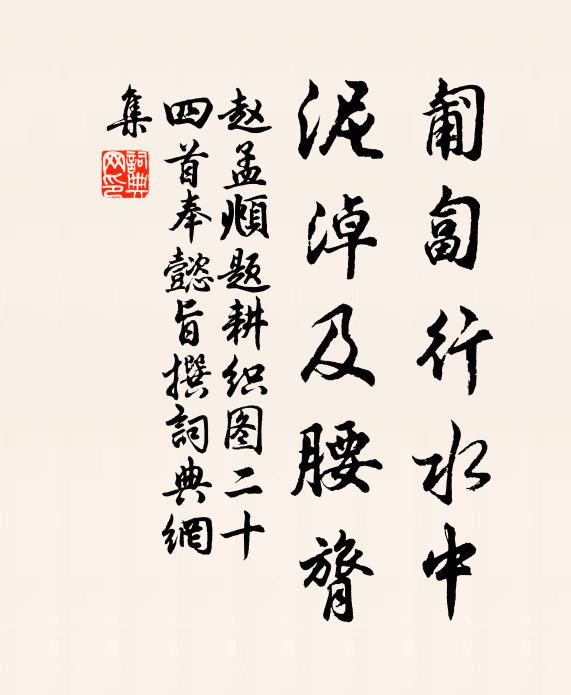 匍匐行水中
泥淖及腰膂
赵孟頫题耕织图二十
四首奉懿旨撰詞典網
集
詞典
网印